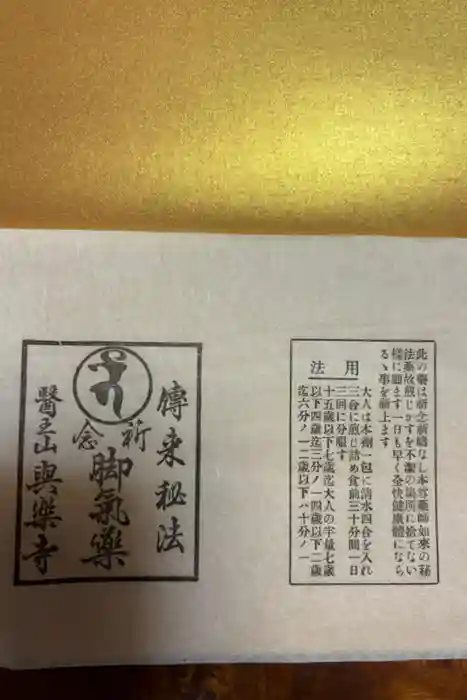 此の薬は祈念祈禱なし本尊薬師如来の秘
法薬故煎じかすを不潔の場所に捨てない
様に願ます一日も早く全快健康體になら
るゝ事を祈上ます
用法
大人は本剤一包に清水四合を入れ
三合に煎じ詰め食前三十分間一日
三回に分服す
十五歳以下七歳迄大人の半量七歳
以下四歳迄三分ノ一四歳以下二歳
迄六分ノ一二歳以下ハ十分ノ一
傳来秘法
祈念
脚氣藥
醫王山與樂寺